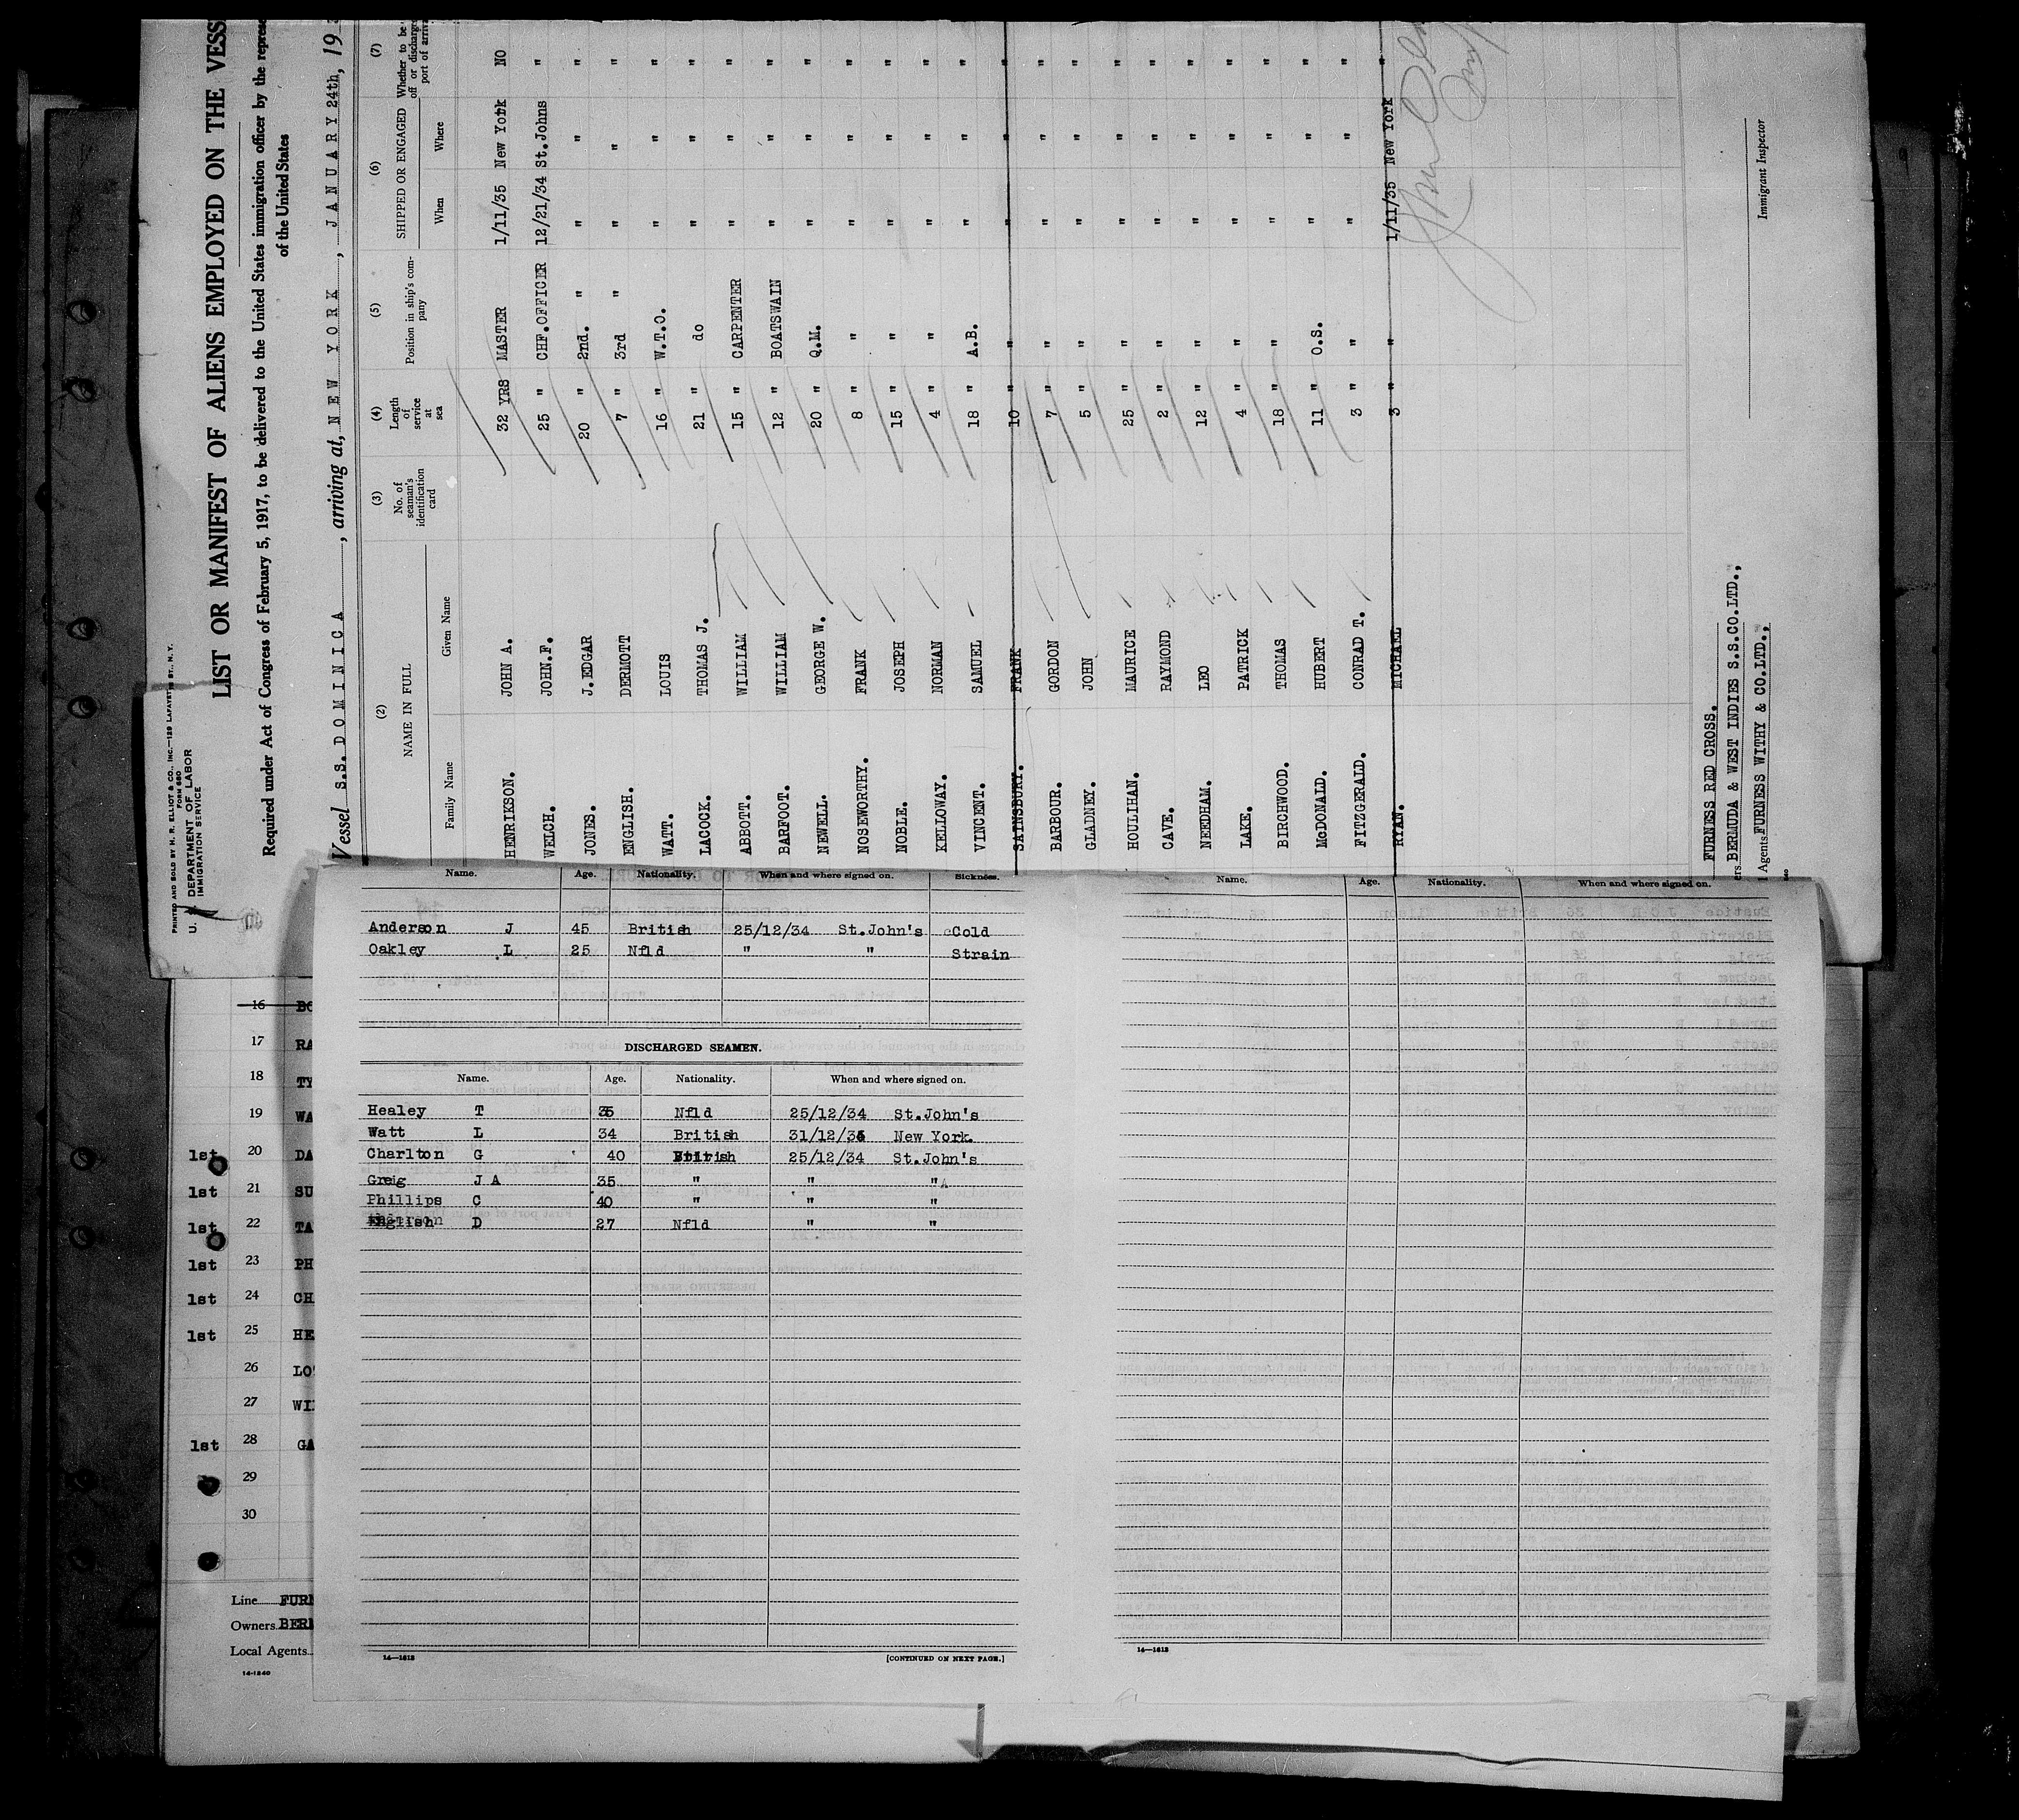 PRINTED AND SOLD BY H. R. ELLIOT & CO., INC.—129 LAFAYETTE ST., N. Y.
FORM 680
U. S. DEPARTMENT OF LABOR
IMMIGRATION SERVICE
LIST OR MANIFEST OF ALIENS EMPLOYED ON THE VESS
Required under Act of Congress of February 5, 1917, to be delivered to the United States immigration officer by the repres
of the United States
Vessel S.S. DOMINICA, arriving at, NEW YORK, JANUARY 24th, 19
(2) (3) (4) (5) (6) (7)
NAME IN FULL No. of seaman's identification card Length of service at sea Position in ship's company SHIPPED OR ENGAGED Whether to be off or discharge port of arriv
Family Name Given Name When Where
HENRIKSON. JOHN A. 32 YRS MASTER 1/11/35 New York NO
WELCH. JOHN.F. 25 " CHF.OFFICER 12/21/34 St.Johns "
JONES. J.EDGAR 20 " 2nd. " " " "
ENGLISH. DERMOTT 7 " 3rd " " " "
WATT. LOUIS 16 " W.T.O. " " "
LACOCK. THOMAS J. 21 " do " " "
ABBOTT. WILLIAM 15 " CARPENTER " " "
BARFOOT. WILLIAM 12 " BOATSWAIN " " "
NEWELL. GEORGE W. 20 " Q.M. " " "
NOSEWORTHY. FRANK 8 " " " " "
NOBLE. JOSEPH 15 " " " " "
KELLOWAY. NORMAN 4 " " " " "
VINCENT. SAMUEL 18 " A.B. " " "
SAINSBURY. FRANK 10 " " " " "
BARBOUR. GORDON 7 " " " " "
GLADNEY. JOHN 5 " " " " "
HOULIHAN. MAURICE 25 " " " " "
CAVE. RAYMOND 2 " " " " "
NEEDHAM. LEO 12 " " " " "
LAKE. PATRICK 4 " " " " "
BIRCHWOOD. THOMAS 18 " " " " "
McDONALD. HUBERT 11 " O.S. " " "
FITZGERALD. CONRAD T. 3 " " " " "
RYAN. MICHAEL 3 " " 1/11/35 New York "
FURNESS RED CROSS.
ers BERMUDA & WEST INDIES S.S.CO.LTD.,
l Agents FURNESS WITHY & CO.LTD.,
Immigrant Inspector
Name. Age. Nationality. When and where signed on. Sickness.
Anderson J 45 British 25/12/34 St.John's Cold
Oakley L 25 Nfld " " Strain
DISCHARGED SEAMEN.
Name. Age. Nationality. When and where signed on.
Healey T 35 Nfld 25/12/34 St.John's
Watt L 34 British New York
Charlton G 40 British 25/12/34 St.John's
Greig J A 35 " " "
Phillips C 40 " " "
English D 27 Nfld " "
14—1613
[CONTINUED ON NEXT PAGE.]
Name. Age. Nationality. When and where signed on.
14—1613
16 BO
17 RA
18 TY
19 WA
1st 20 DA
1st 21 SU
1st 22 TA
1st 23 PH
1st 24 CH
1st 25 HE
26 LO
27 WI
1st 28 GA
29
30
Line FURN
Owners BERM
Local Agents
14-1240